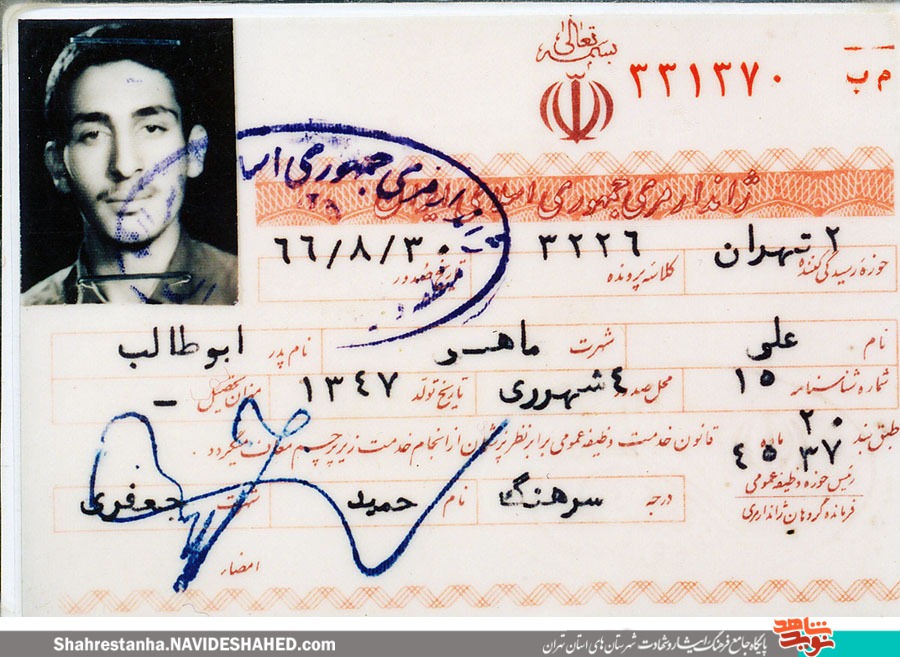 بسمه تعالی
م ب
۳۳۱۳۷۰
ژاندارمری جمهوری اسلامی ایران
حوزه رسیدگی کننده ۲ تهران کلاسه پرونده ۳۲۲۶ تاریخ صدور ۶۶/۸/۳۰
نام علی شهرت ماهر نام پدر ابوطالب
شماره شناسنامه ۱۵ محل صدور ۴ شهرری تاریخ تولد ۱۳۴۷ میزان تحصیل –
طبق بند ۲۰ ماده ۳۷ ۴۵ قانون خدمت وظیفه عمومی برابر نظر پزشکان از انجام خدمت زیر پرچم معاف میگردد.
رئیس حوزه وظیفه عمومی
فرمانده گروهان ژاندارمری
درجه سرهنگ نام حمید شهرت جعفری
امضاء
Shahrestanha.NAVIDESHAHED.com
پایگاه جامع فرهنگ ایثار و شهادت شهرستان های استان تهران
نوید شاهد